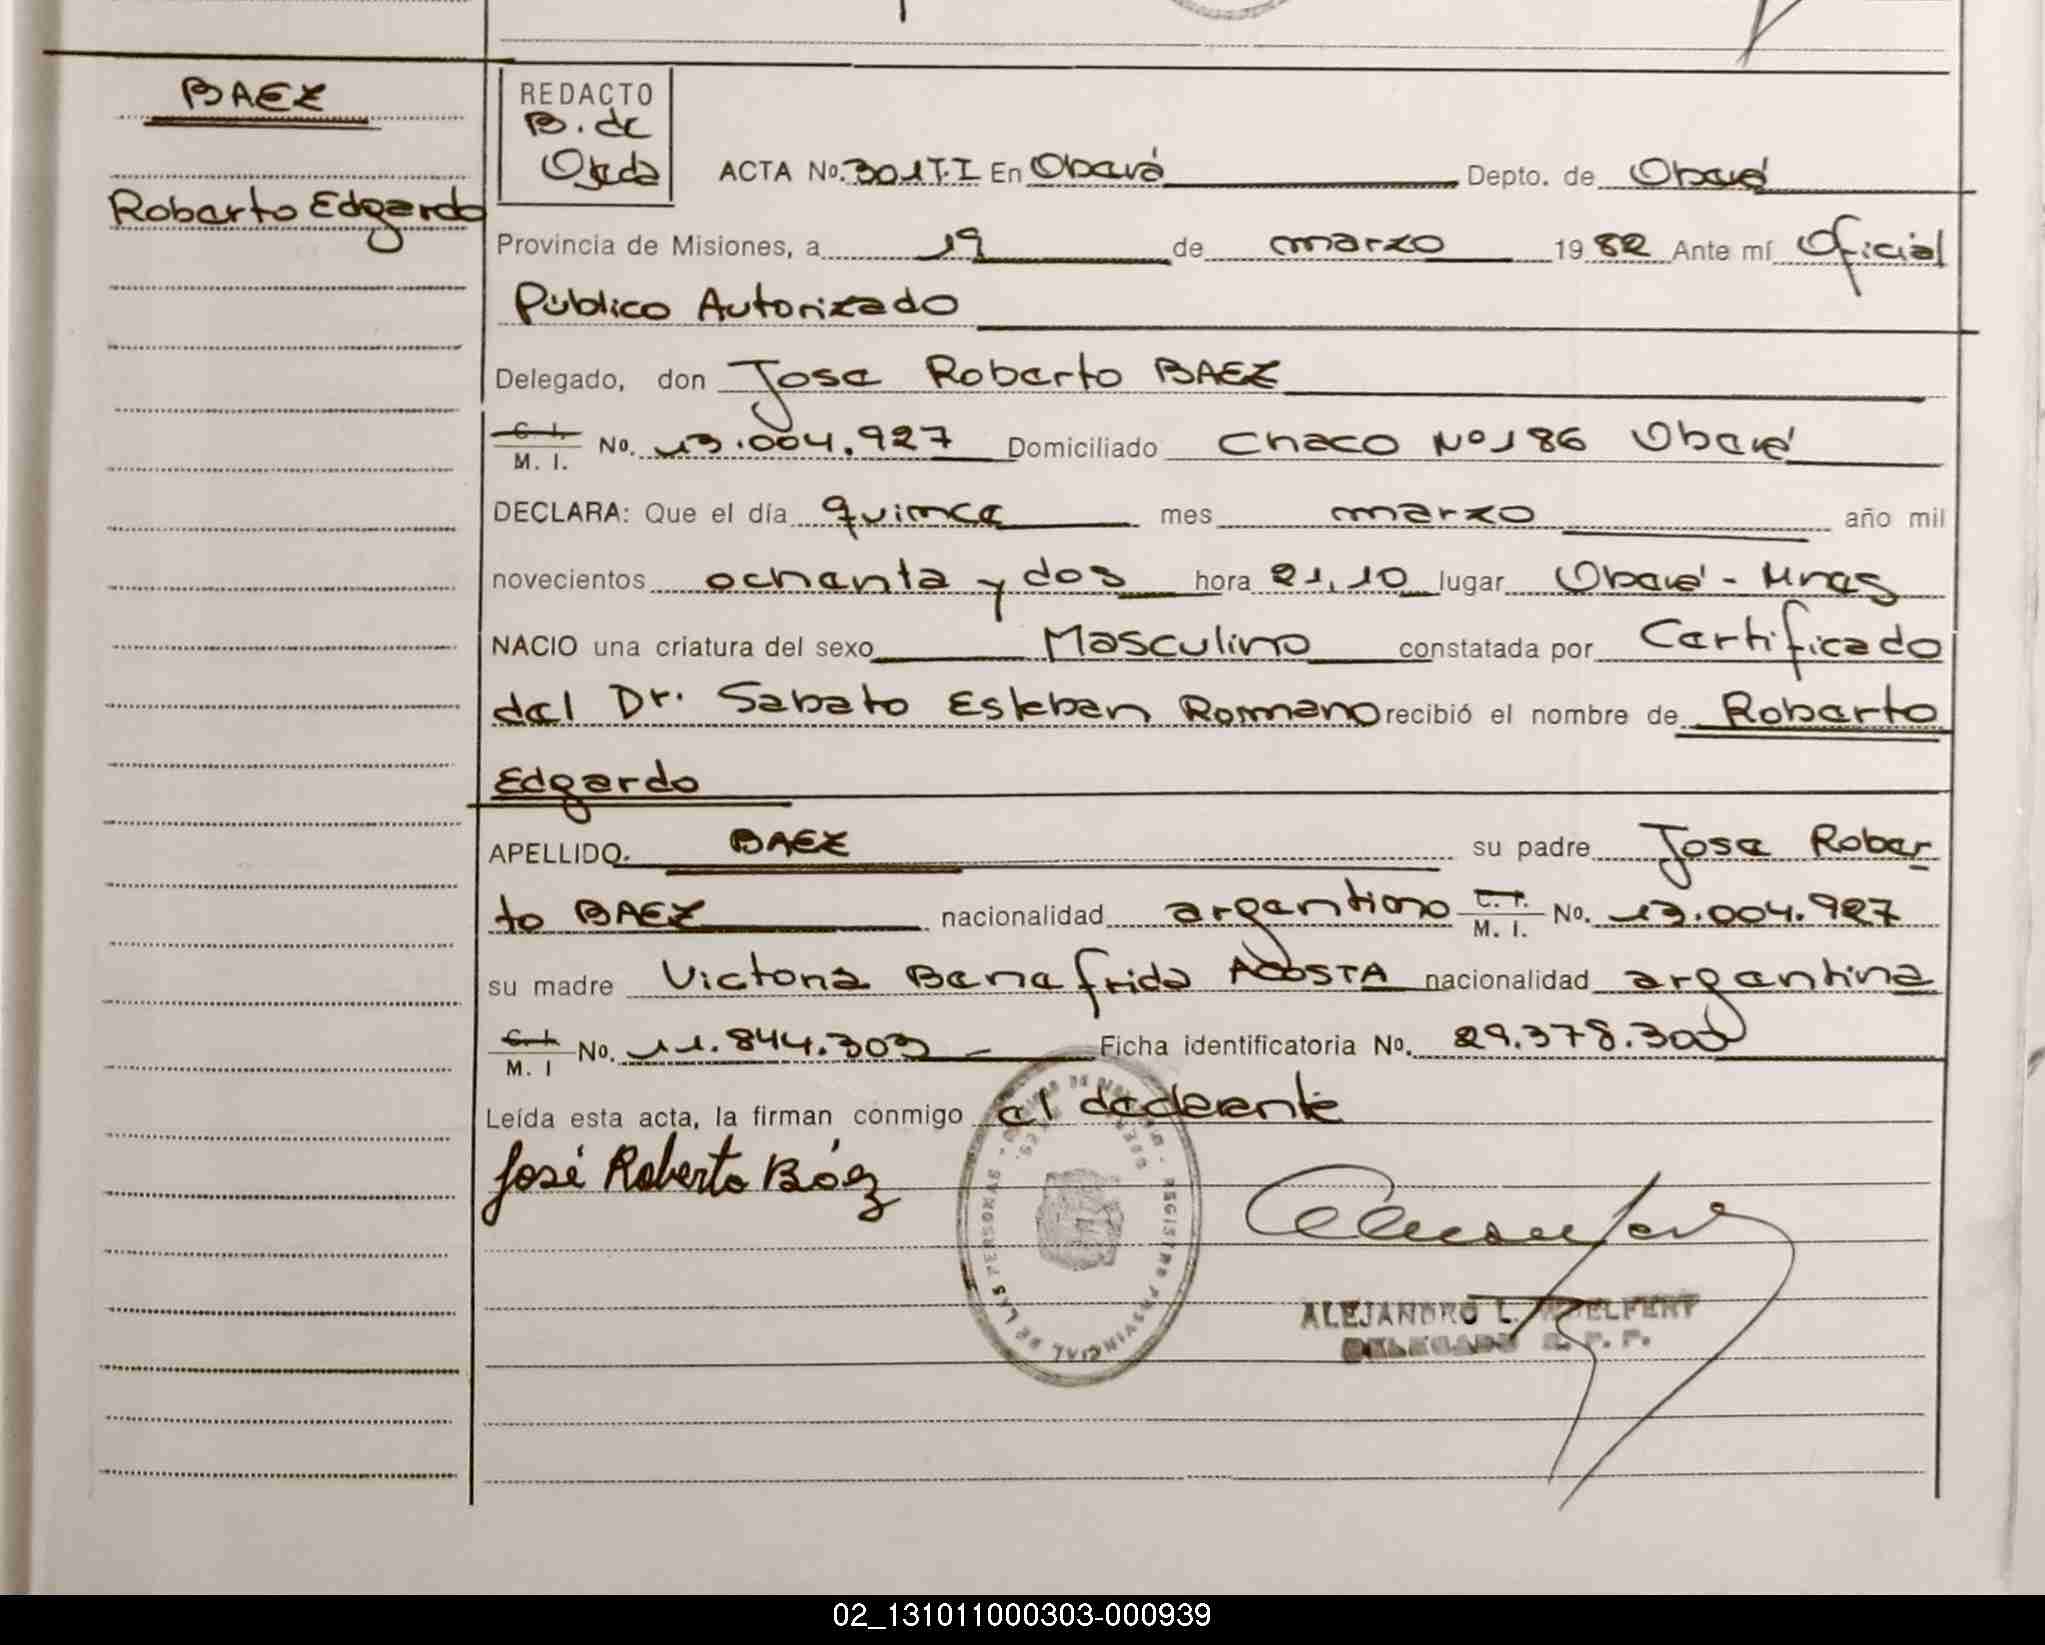 BAEZ
Roberto Edgardo
REDACTO
B. de
Ojeda
ACTA No. 301 T.I En Oberá Depto. de Oberá
Provincia de Misiones, a 19 de marzo 1982 Ante mí Oficial
Público Autorizado
Delegado, don Jose Roberto BAEZ
C. I. / M. I. No. 13.004.927 Domiciliado Chaco Nº 186 Oberá
DECLARA: Que el día quince mes marzo año mil
novecientos ochenta y dos hora 21,10 lugar Oberá - Mnes
NACIO una criatura del sexo Masculino constatada por Certificado
del Dr. Sabato Esteban Romano recibió el nombre de Roberto
Edgardo
APELLIDO. BAEZ su padre Jose Rober-
to BAEZ nacionalidad argentino C. I. / M. I. No. 13.004.927
su madre Victoria ACOSTA nacionalidad argentina
C. I. / M. I No. 11.844.303 Ficha identificatoria No. 29.378.300
Leída esta acta, la firman conmigo el declarante
José Roberto Báez
REGISTRO PROVINCIAL DE LAS PERSONAS
ALEJANDRO L.
DELEGADO R. P. P.
02_131011000303-000939